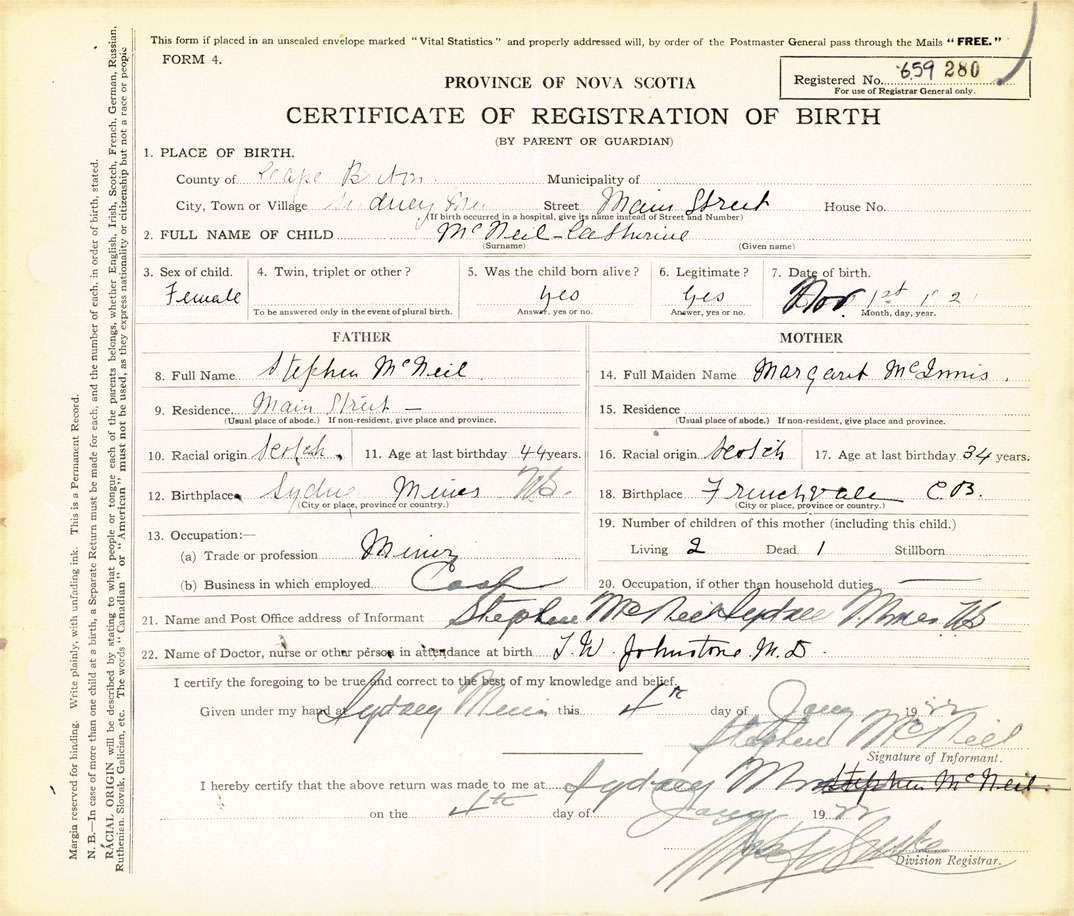 This form if placed in an unsealed envelope marked "Vital Statistics" and properly addressed will, by order of the Postmaster General pass through the Mails "FREE."
FORM 4.
PROVINCE OF NOVA SCOTIA
Registered No. 659 280
For use of Registrar General only.
CERTIFICATE OF REGISTRATION OF BIRTH
(BY PARENT OR GUARDIAN)
1. PLACE OF BIRTH.
County of Cape Breton Municipality of
City, Town or Village Sydney Street Main Street House No.
(If birth occurred in a hospital, give its name instead of Street and Number)
2. FULL NAME OF CHILD McNeil - Catherine
(Surname) (Given name)
3. Sex of child. 4. Twin, triplet or other? 5. Was the child born alive? 6. Legitimate? 7. Date of birth.
Female yes yes Nov. 1st
To be answered only in the event of plural birth. Answer, yes or no. Answer, yes or no. Month, day, year.
FATHER
8. Full Name Stephen McNeil
9. Residence Main Street -
(Usual place of abode.) If non-resident, give place and province.
10. Racial origin Scotch. 11. Age at last birthday 44 years.
12. Birthplace Sydney Mines NS.
(City or place, province or country.)
13. Occupation:—
(a) Trade or profession Miner
(b) Business in which employed
MOTHER
14. Full Maiden Name Margaret McInnis.
15. Residence
(Usual place of abode.) If non-resident, give place and province.
16. Racial origin Scotch 17. Age at last birthday 34 years.
18. Birthplace Frenchvale C.B.
(City or place, province or country.)
19. Number of children of this mother (including this child.)
Living 2 Dead 1 Stillborn
20. Occupation, if other than household duties
21. Name and Post Office address of Informant Stephen McNeil Sydney Mines NS
22. Name of Doctor, nurse or other person in attendance at birth T.W. Johnstone M.D.
I certify the foregoing to be true and correct to the best of my knowledge and belief.
Given under my hand at Sydney Mines this 4th day of Jany 1922
Stephen McNeil
Signature of Informant.
I hereby certify that the above return was made to me at Sydney Mines Stephen McNeil
on the 4th day of Jany 1922
Division Registrar.
Margin reserved for binding. Write plainly, with unfading ink. This is a Permanent Record.
N. B.—In case of more than one child at a birth, a Separate Return must be made for each, and the number of each, in order of birth, stated.
RACIAL ORIGIN will be described by stating to what people or tongue each of the parents belongs, whether English, Irish, Scotch, French, German, Russian,
Ruthenian, Slovak, Galician, etc. The words "Canadian" or "American" must not be used, as they express nationality or citizenship but not a race or people